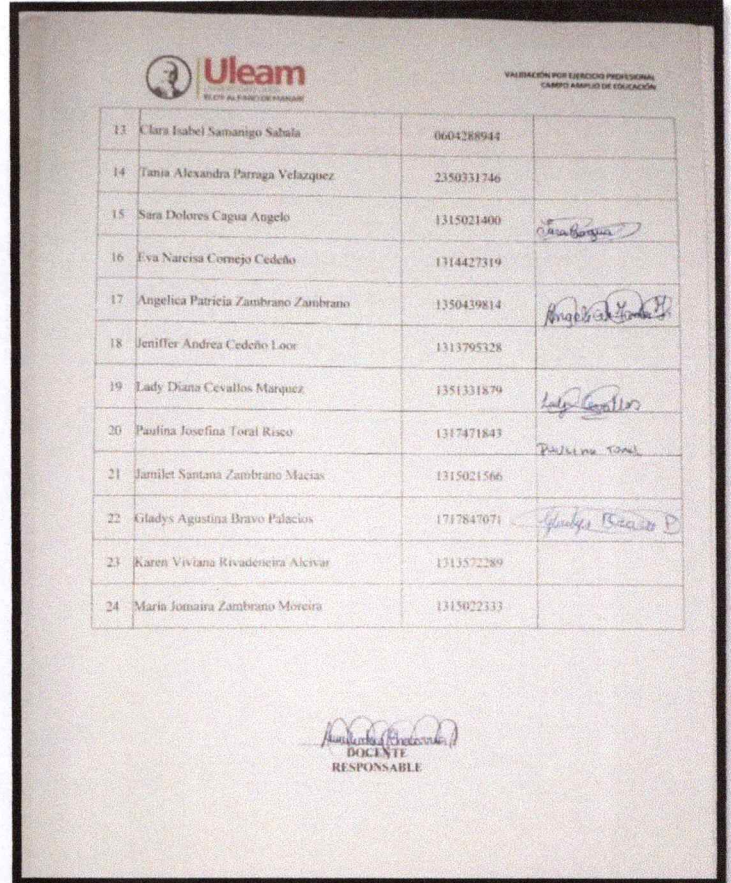 Uleam
ELOY ALFARO DE MANABÍ
VALIDACIÓN POR EJERCICIO PROFESIONAL
CAMPO AMPLIO DE EDUCACIÓN
13 Clara Isabel Samanigo Sabala 0604288944
14 Tania Alexandra Parraga Velazquez 2350331746
15 Sara Dolores Cagua Angelo 1315021400
16 Eva Narcisa Cornejo Cedeño 1314427319
17 Angelica Patricia Zambrano Zambrano 1350439814
18 Jeniffer Andrea Cedeño Loor 1313795328
19 Lady Diana Cevallos Marquez 1351331879 Lady Cevallos
20 Paulina Josefina Toral Risco 1317471843 Paulina Toral
21 Jamilet Santana Zambrano Macias 1315021566
22 Gladys Agustina Bravo Palacios 1717847071 Gladys Bravo P
23 Karen Viviana Rivadeneira Alcivar 1313572289
24 Maria Jomaira Zambrano Moreira 1315022333
DOCENTE
RESPONSABLE